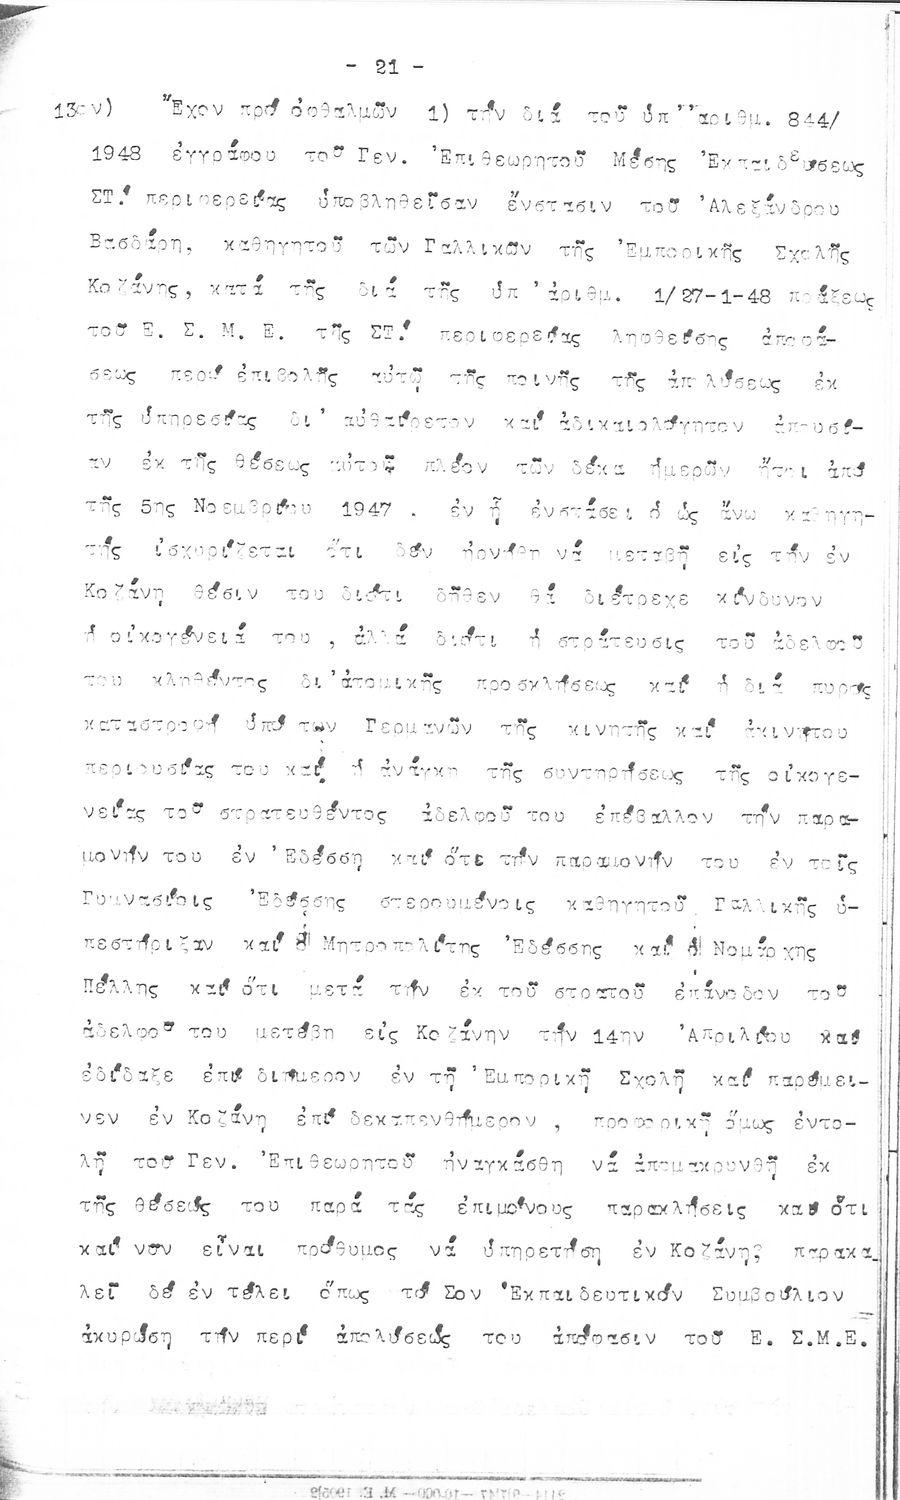 - 21 -
13ον) Ἔχον πρό ὀφθαλμῶν 1) τήν διά τοῦ ὑπ' ἀριθμ. 844/
1948 ἐγγράφου τοῦ Γεν. Ἐπιθεωρητοῦ Μέσης Ἐκπαιδεύσεως
ΣΤ! περιφερείας ὑποβληθεῖσαν ἔνστασιν τοῦ Ἀλεξάνδρου
Βασδάρη, καθηγητοῦ τῶν Γαλλικῶν τῆς Ἐμπορικῆς Σχολῆς
Κοζάνης, κατά τῆς διά τῆς ὑπ' ἀριθμ. 1/27-1-48 πράξεως
τοῦ Ε. Σ. Μ. Ε. τῆς ΣΤ! περιφερείας ληφθείσης ἀποφά-
σεως περί ἐπιβολῆς αὐτῷ τῆς ποινῆς τῆς ἀπολύσεως ἐκ
τῆς ὑπηρεσίας δι' αὐθαίρετον καί ἀδικαιολόγητον ἀπουσί-
αν ἐκ τῆς θέσεως αὐτοῦ πλέον τῶν δέκα ἡμερῶν ἤτοι ἀπό
τῆς 5ης Νοεμβρίου 1947 . ἐν ᾗ ἐνστάσει ὁ ὡς ἄνω καθηγη-
τής ἰσχυρίζεται ὅτι δέν ἠρνήθη νά μεταβῆ εἰς τήν ἐν
Κοζάνη θέσιν του διότι δῆθεν θά διέτρεχε κίνδυνον
ἡ οἰκογένειά του , ἀλλά διότι ἡ στράτευσις τοῦ ἀδελφοῦ
του κληθέντος δι'ἀτομικῆς προσκλήσεως καί ἡ διά πυρός
καταστροφή ὑπό των Γερμανῶν τῆς κινητῆς καί ἀκινήτου
περιουσίας του καί ἡ ἀνάγκη τῆς συντηρήσεως τῆς οἰκογε-
νείας τοῦ στρατευθέντος ἀδελφοῦ του ἐπέβαλλον τήν παρα-
μονήν του ἐν Ἐδέσση καί ὅτε τήν παραμονήν του ἐν τοῖς
Γυμνασίοις Ἐδέσσης στερουμένοις καθηγητοῦ Γαλλικῆς ὑ-
πεστήριξαν καί ὁ Μητροπολίτης Ἐδέσσης καί ὁ Νομάρχης
Πέλλης καί ὅτι μετά τήν ἐκ τοῦ στρατοῦ ἐπάνοδον τοῦ
ἀδελφοῦ του μετέβη εἰς Κοζάνην τήν 14ην Ἀπριλίου καί
ἐδίδαξε ἐπί διήμερον ἐν τῆ Ἐμπορικῆ Σχολῆ καί παρέμει-
νεν ἐν Κοζάνη ἐπί δεκαπενθήμερον , προφορικῆ ὅμως ἐντο-
λῆ τοῦ Γεν. Ἐπιθεωρητοῦ ἠναγκάσθη νά ἀπομακρυνθῆ ἐκ
τῆς θέσεώς του παρά τάς ἐπιμόνους παρακλήσεις καί ὅτι
καί νῦν εἶναι πρόθυμος νά ὑπηρετήση ἐν Κοζάνη; παρακα_
λεῖ δέ ἐν τέλει ὅπως τό Σον Ἐκπαιδευτικόν Συμβούλιον
ἀκυρώση τήν περί ἀπολύσεώς του ἀπόφασιν τοῦ Ε. Σ.Μ.Ε.